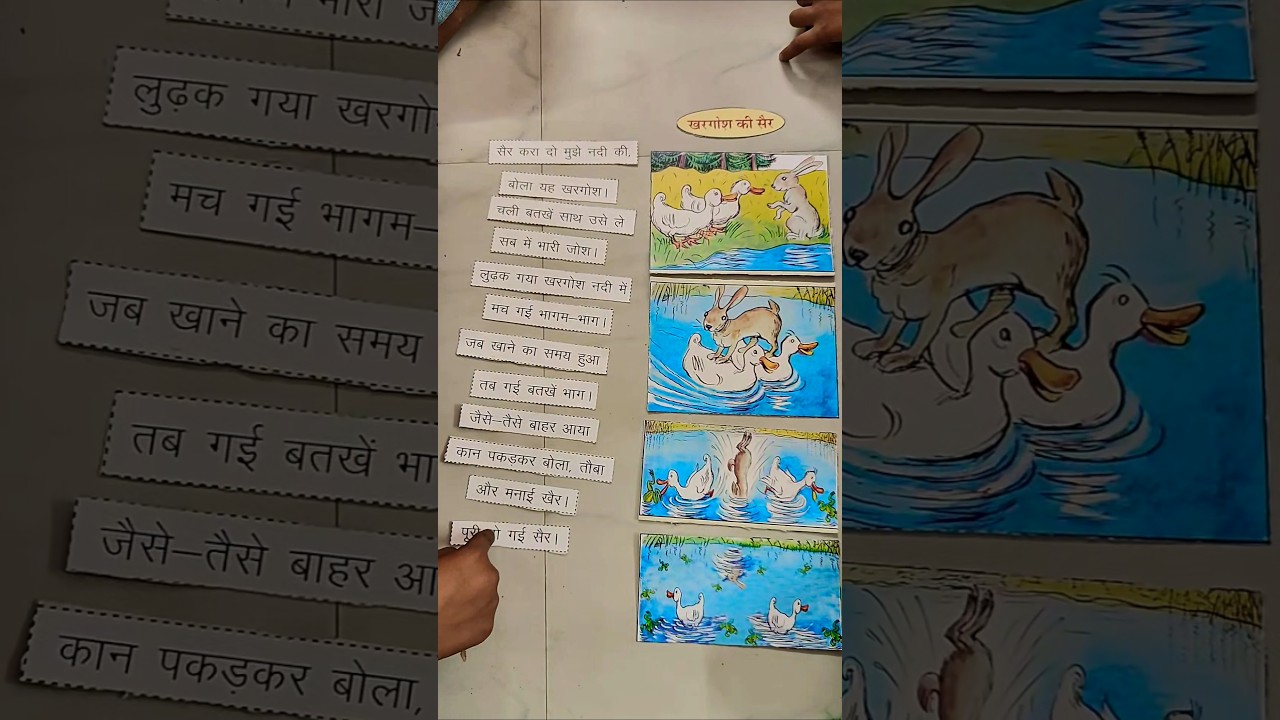 खरगोश की सैर
सैर करा दो मुझे नदी की,
बोला यह खरगोश।
चली बतखें साथ उसे ले
सब में भारी जोश।
लुढ़क गया खरगोश नदी में
मच गई भागम–भाग।
जब खाने का समय हुआ
तब गई बतखें भाग।
जैसे–तैसे बाहर आया
कान पकड़कर बोला, तौबा
और मनाई खैर।
गई सैर।
लुढ़क गया खरगो
मच गई भागम–
जब खाने का समय
तब गई बतखें भा
जैसे–तैसे बाहर आ
कान पकड़कर बोला,